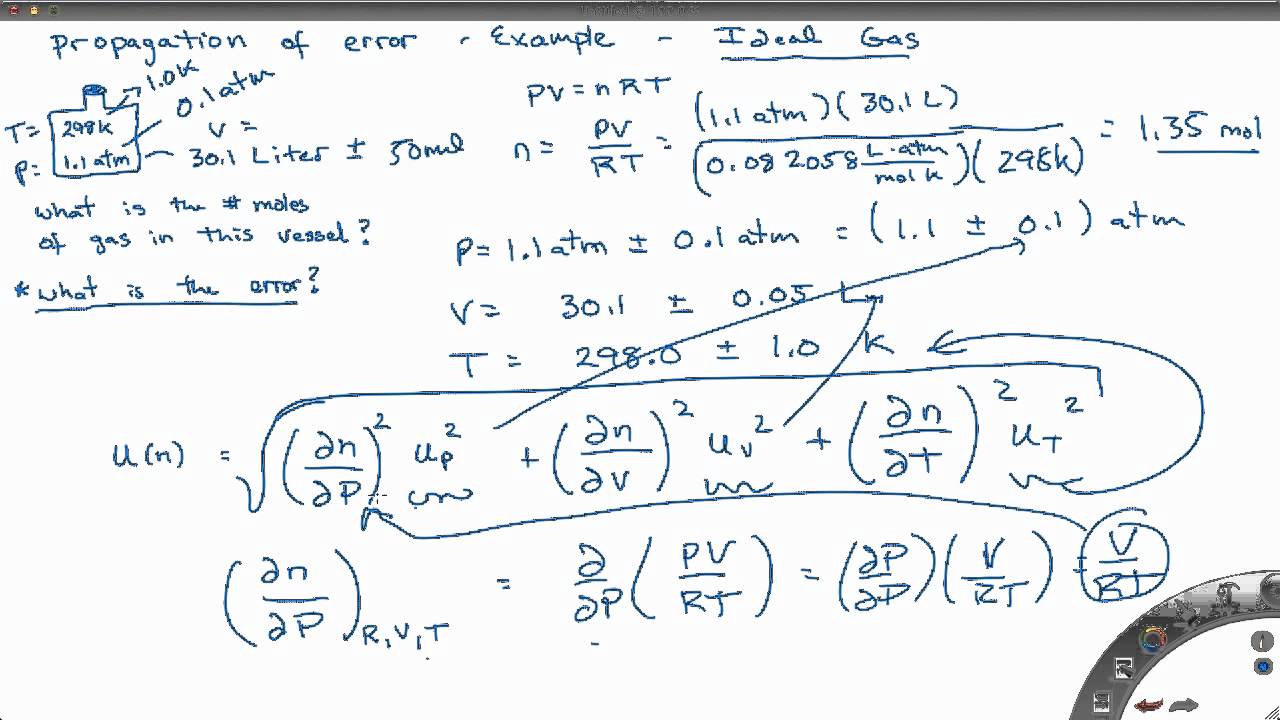 Propagation of error - Example - Ideal Gas
1.0K
0.1 atm
T= 298K
P= 1.1 atm
V =
30.1 Liter ± 50ml
what is the # moles
of gas in this vessel?
* what is the error?
PV = nRT
n = PV/RT = (1.1 atm)(30.1 L) / (0.082058 L·atm/mol K)(298K) = 1.35 mol
P= 1.1 atm ± 0.1 atm = (1.1 ± 0.1) atm
V = 30.1 ± 0.05 L
T = 298.0 ± 1.0 K
u(n) = √ (∂n/∂P)² u_P² + (∂n/∂V)² u_V² + (∂n/∂T)² u_T²
(∂n/∂P)_R,V,T = ∂/∂P (PV/RT) = (∂P/∂P)(V/RT) = V/RT